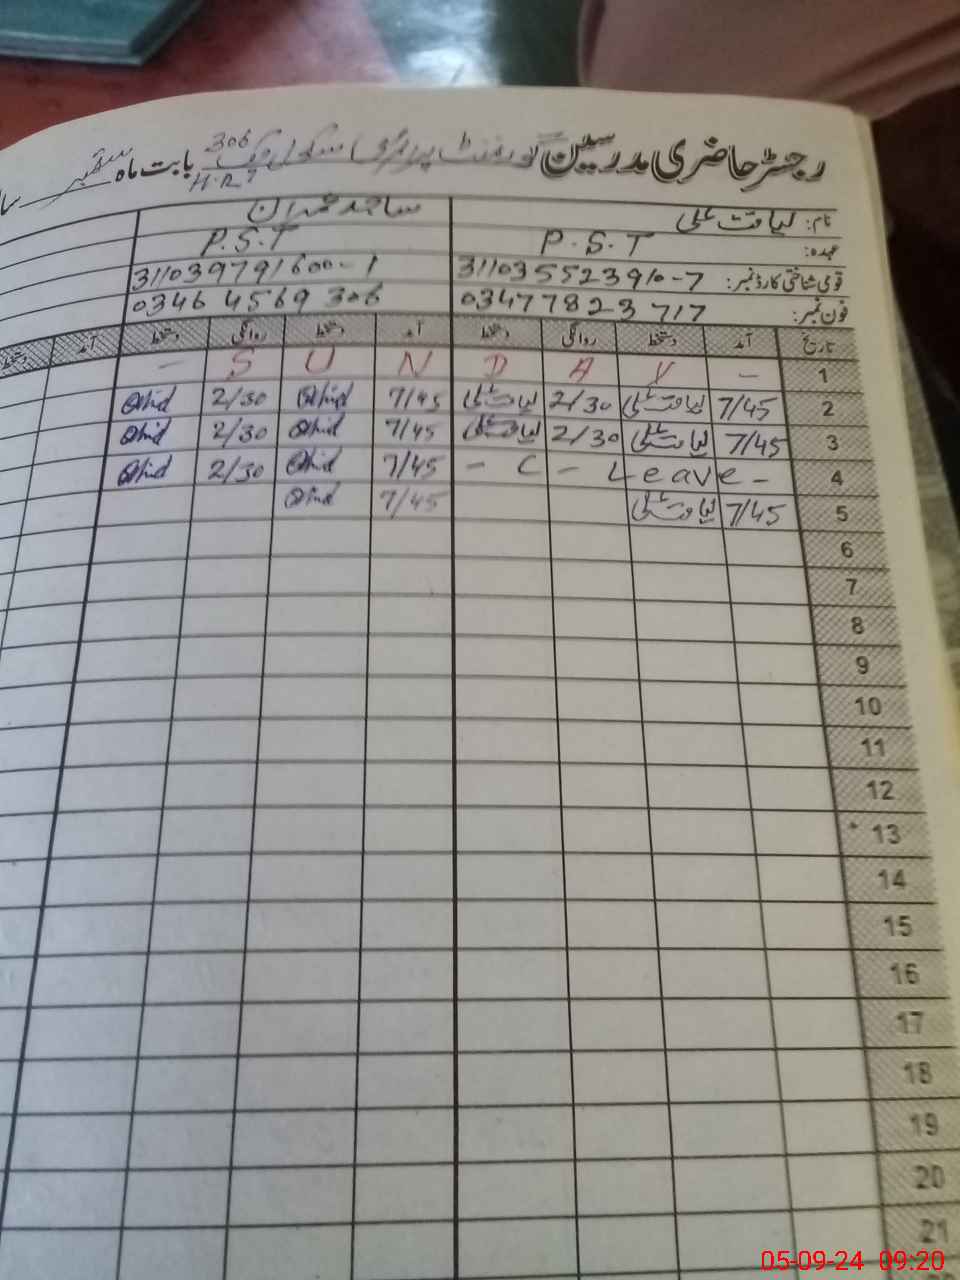 رجسٹر حاضری مدرسین گورنمنٹ پرائمری سکول چک 306 H.R 7 بابت ماہ ستمبر
نام: لیاقت علی ساجد عمران
عہدہ: P.S.T P.S.T
قومی شناختی کارڈ نمبر: 3110355523910-7 3110397971600-1
فون نمبر: 03477823717 03464569306
تاریخ آمد دستخط روانگی دستخط آمد دستخط روانگی دستخط آمد دستخط
1 - S U N D A Y -
2 7/45 لیاقت علی 2/30 لیاقت علی 7/45 2/30
3 7/45 لیاقت علی 2/30 لیاقت علی 7/45 2/30
4 - C - Leave - 7/45 2/30
5 7/45 لیاقت علی 7/45
6
7
8
9
10
11
12
13
14
15
16
17
18
19
20
21
05-09-24 09:20